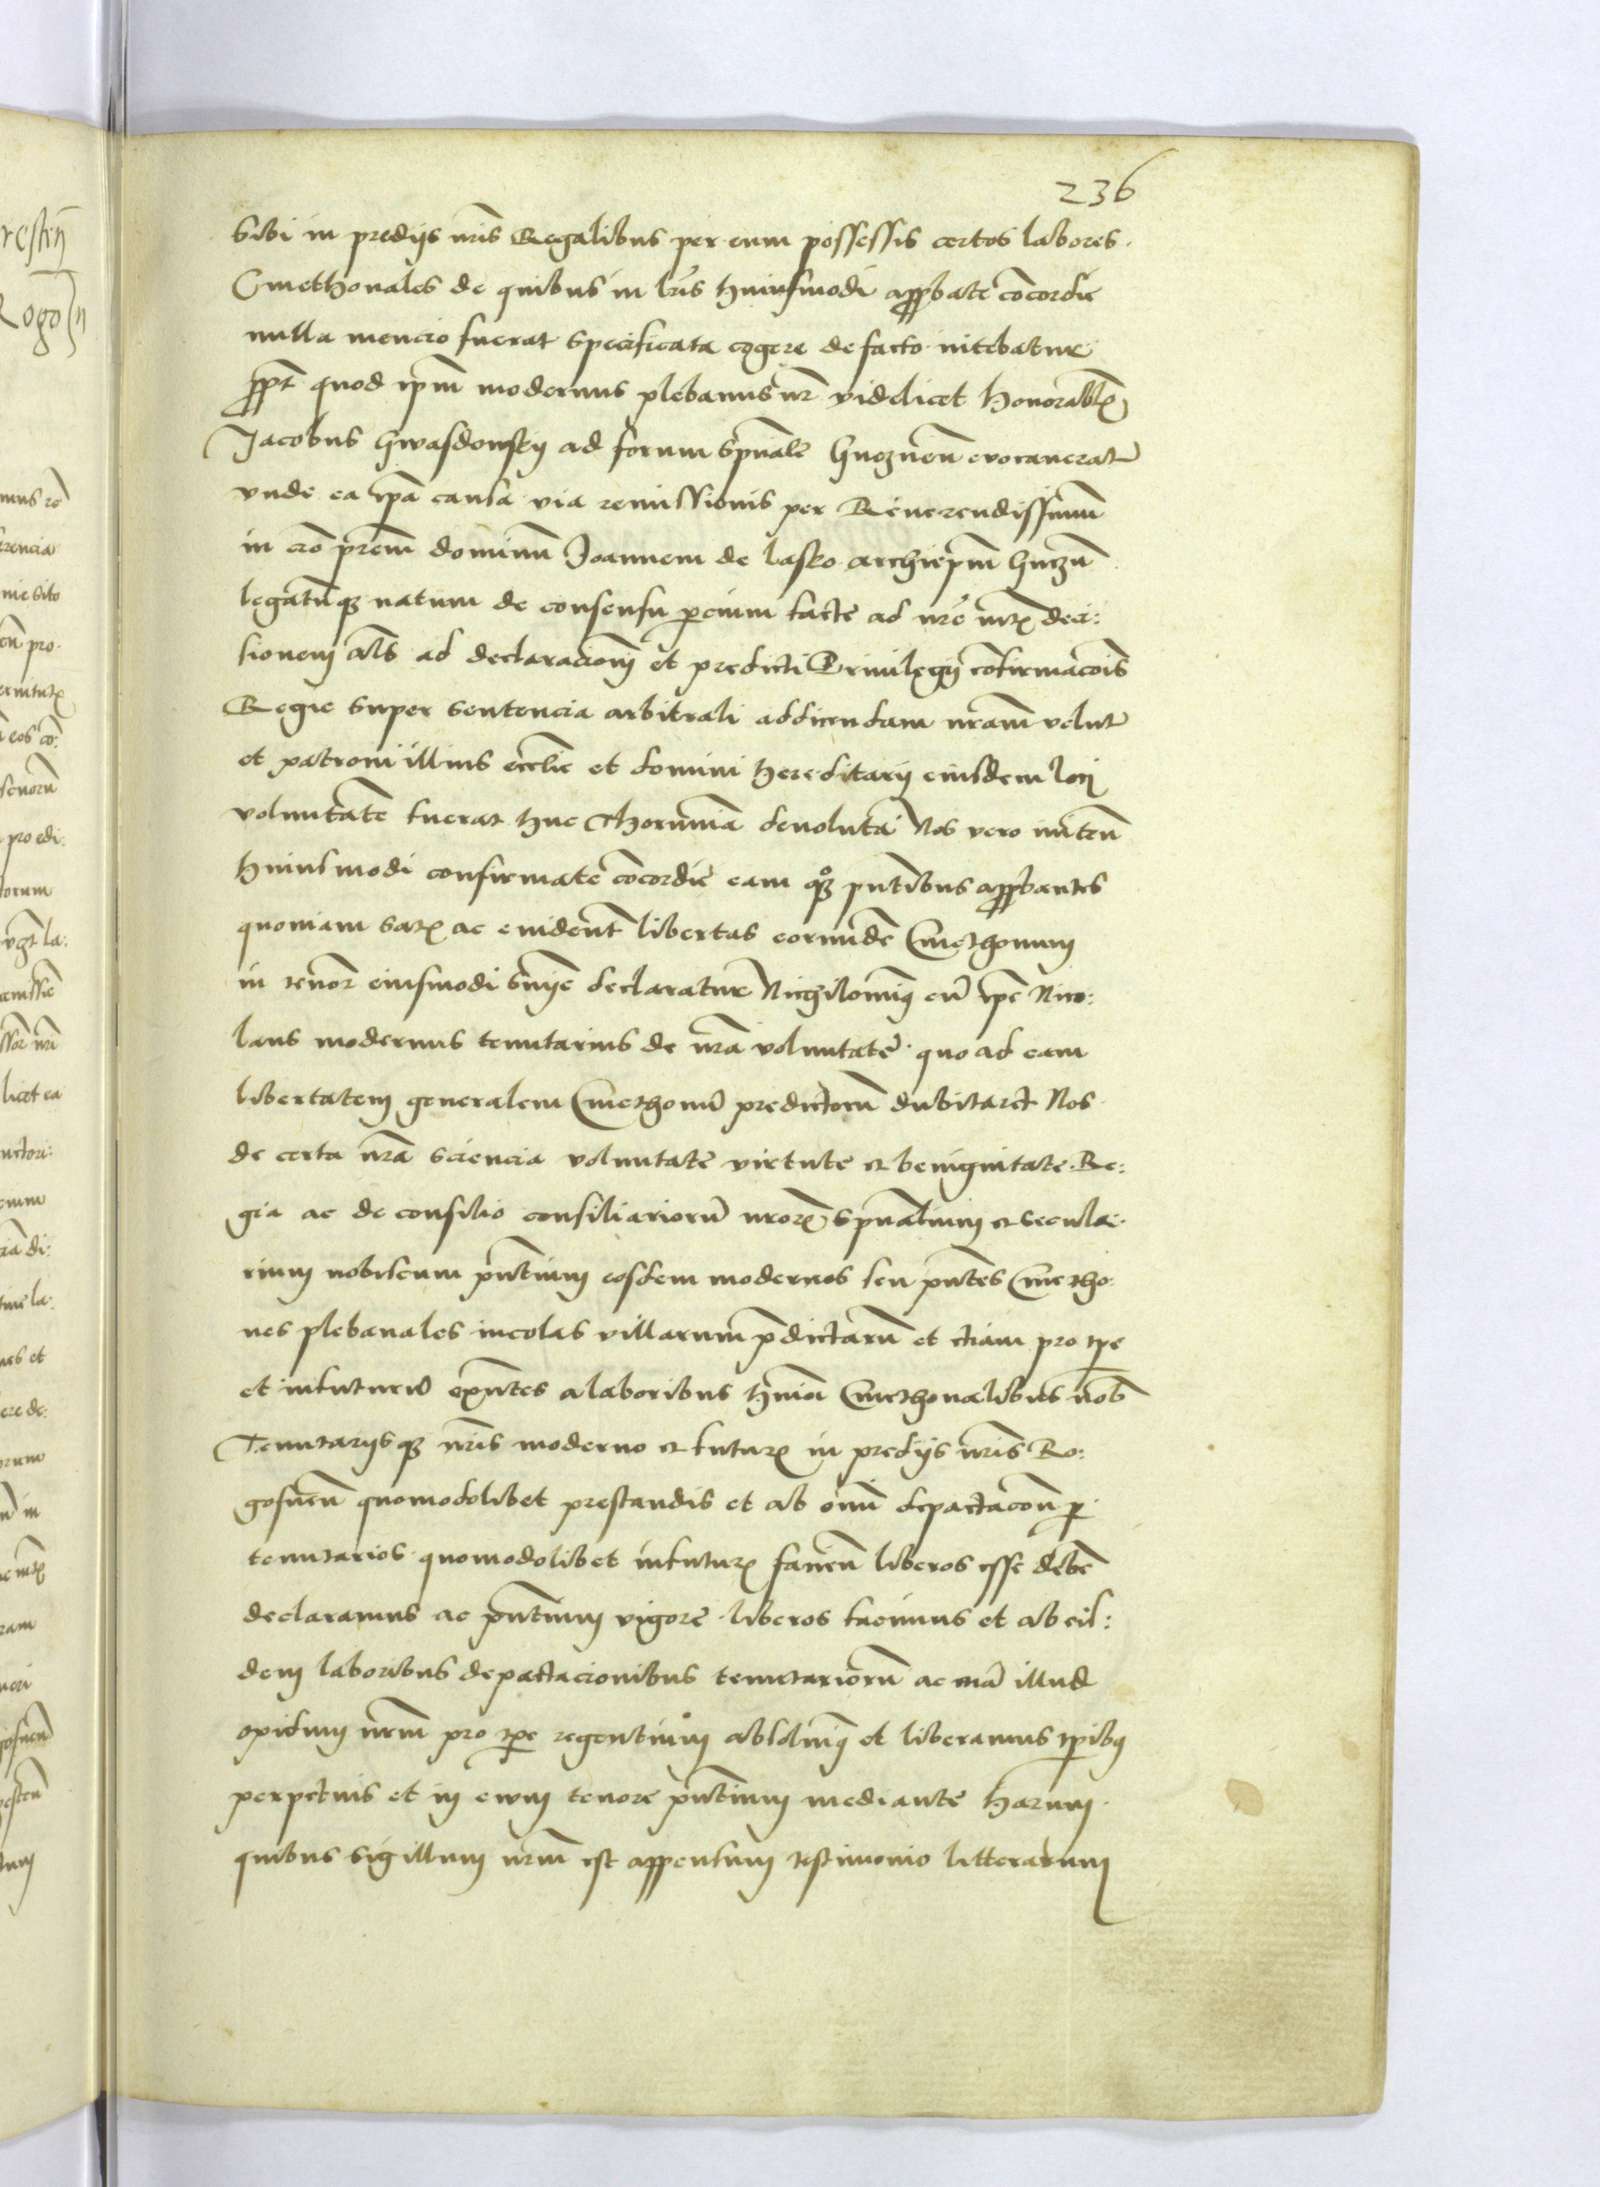 236
Sibi in predijs nris Regalibus per eum possessis certos labores
Cmethonales de quibus in lris huiusmodi approbate concordie
nulla mencio fuerat specificata cogere de facto nitebatur
quod ipm modernus plebanus videlicet honorabil
Jacobus Gwasdowsky ad forum spuale Gneznen evocauerat
vnde ea ipa causa via remissionis per Reuerendissimum
in cro prem dominum Joannem de lasko archiepm Gnezn
legatumq natum de consensu parcium facte ad nre deci:
sionem als ad declaracionem et predicti Priuilegij confirmacois
Regie super sentencia arbitrali addicendam nram velut
et patroni illius ecclie et domini hereditarij eiusdem loci
voluntatem fuerat huc Thoruniam deuoluta Nos vero
huiusmodi confirmate concordie eam pntibus approbantes
quoniam ac euident libertas eorundem Cmethonum
in tenore eiusmodi declaratur Nichilominus cum ipe Nico:
laus modernus tenutarius de nra voluntate quo ad eam
libertatem generalem Cmethonum predictorum dubitaret Nos
de certa nra sciencia voluntate virtute et benignitate Re:
gia ac de consilio consiliariorum nrorum spualium et secula:
rium nobiscum pntium eosdem modernos seu pntes Cmetho:
nes plebanales incolas villarum predictarum et etiam pro tpe
et infuturum exntes a laboribus Cmethonalibus nob
Tenutarijsq nris moderno et futur in predijs nris Ro:
gosnen quomodolibet prestandis et ab omni depactacon per
tenutarios quomodolibet infutur liberos esse debere
declaramus ac pntium vigore liberos facimus et ab eis:
dem laboribus depactacionibus tenutariorum ac illud
opidum nrm pro tpe regentium absoluimus et liberamus tpibus
perpetuis et in ewm tenore pntium mediante harum
quibus sigillum nrm est appensum testimonio litterarum